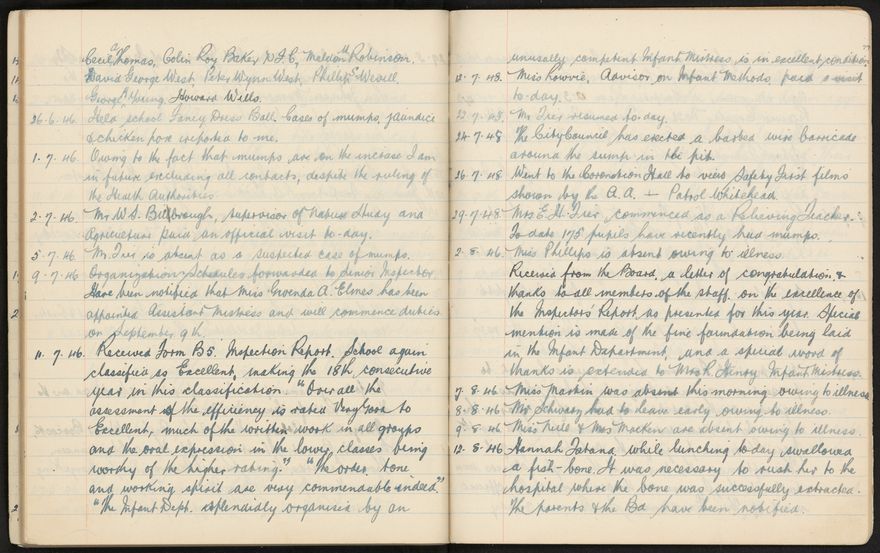 Cecil A Thomas, Colin Roy Baker D.F.C, Maldon H Robinson.
David George West, Peter Wynn West, Phillip S Wevill.
George A Young, Howard Wills.
26.6.46. Held school Fancy Dress Ball. Case of mumps, jaundice
& chicken pox reported to me.
1.7.46. Owing to the fact that mumps are on the increase I am
in future excluding all contacts, despite the ruling of
the Health Authorities.
2.7.46. Mr W.S. Bilbrough, supervisor of Nature Study and
Agriculture paid an official visit to-day.
5.7.46. Mr. Iver is absent as a suspected case of mumps.
9.7.46 Organization Schedules forwarded to Senior Inspector.
Have been notified that Miss Gwenda A. Elmes has been
appointed Assistant Mistress and will commence duties
on September 9th.
11.7.46. Received Form B5. Inspection Report. School again
classified as Excellent, making the 18th consecutive
year in this classification. "Over all the
assessment of the efficiency is rated Very Good to
Excellent, much of the written work in all groups
and the oral expression in the lower classes being
worthy of the higher rating." "The order, tone
and working spirit are very commendable indeed."
"The Infant Dept. splendidly organised by an
unusually competent Infant Mistress is in excellent condition"
7.48. Miss Lowrie, Advisor on Infant Methods paid a visit
to-day.
7.48. Mr Iver resumed to-day.
24.7.48 The City Council has erected a barbed wire barricade
around the sump in the pit.
26.7.48 Went to the Coronation Hall to view Safety First films
shown by the A.A. — Patrol Whitehead.
29.7.48 Mrs E.H. Iver commenced as a Relieving Teacher.
To date 175 pupils have recently had mumps.
2.8.46 Miss Phillips is absent owing to illness.
Received from the Board, a letter of congratulation &
thanks to all members of the staff on the excellence of
the Inspectors Report as presented for this year. Special
mention is made of the fine foundation being laid
in the Infant Department, and a special word of
thanks is extended to Mrs R. Henry Infant Mistress.
7.8.46 Miss Martin was absent this morning owing to illness
8.8.46 Mr Schwarz had to leave early owing to illness.
9.8.46 Miss Neill & Mrs Macken are absent owing to illness.
12.8.46 Hannah Fatand while lunching to-day swallowed
a fish-bone. It was necessary to rush her to the
hospital where the bone was successfully extracted.
The parents & the Bd. have been notified.